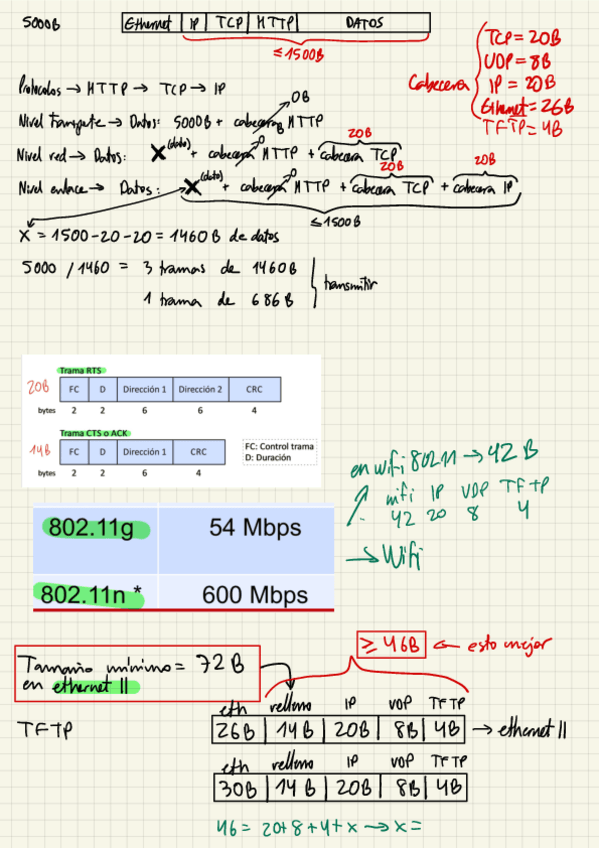 5000B
Ethernet | IP | TCP | HTTP | DATOS
≤1500B
Cabecera
TCP = 20B
UDP = 8B
IP = 20B
Ethernet = 26B
TFTP = 4B
Protocolos → HTTP → TCP → IP
0B
Nivel transporte → Datos: 5000B + cabecera HTTP
20B
Nivel red → Datos: X (dato) + cabecera HTTP + cabecera TCP
0
20B 20B
Nivel enlace → Datos: X (dato) + cabecera HTTP + cabecera TCP + cabecera IP
0
≤1500B
X = 1500-20-20 = 1460B de datos
5000 / 1460 = 3 tramas de 1460B
1 trama de 686B
transmitir
Trama RTS
20B FC D Dirección 1 Dirección 2 CRC
bytes 2 2 6 6 4
Trama CTS o ACK
14B FC D Dirección 1 CRC
bytes 2 2 6 4
FC: Control trama
D: Duración
en wifi 802.11 → 42B
wifi IP UDP TFTP
42 20 8 4
→ Wifi
802.11g 54 Mbps
802.11n * 600 Mbps
≥46B ← esto mejor
Tamaño mínimo = 72B
en ethernet II
eth relleno IP UDP TFTP
TFTP
26B | 14B | 20B | 8B | 4B → ethernet II
eth relleno IP UDP TFTP
30B | 14B | 20B | 8B | 4B
46 = 20+8+4+x → x =